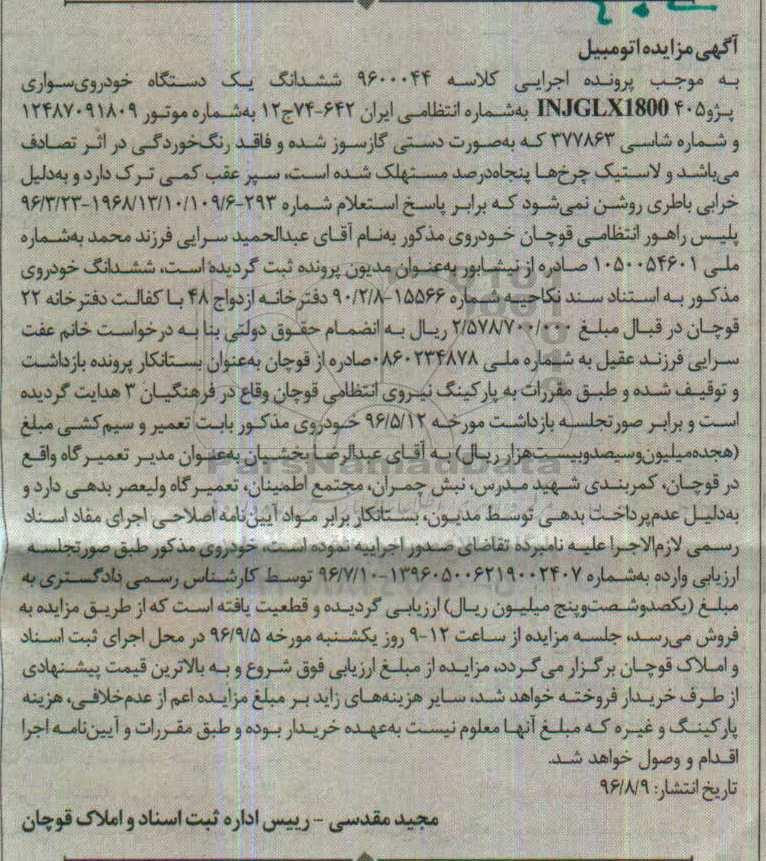 آگهی مزایده اتومبیل
به موجب پرونده اجرایی کلاسه ۹۶۰۰۰۴۴ ششدانگ یک دستگاه خودروی سواری
پژو ۴۰۵ INJGLX1800 به‌شماره انتظامی ایران ۶۴۲-۷۴ج۱۲ به‌شماره موتور ۱۲۴۸۷۰۹۱۸۰۹
و شماره شاسی ۳۷۷۸۶۳ که به‌صورت دستی گازسوز شده و فاقد رنگ‌خوردگی در اثر تصادف
می‌باشد و لاستیک چرخ‌ها پنجاه‌درصد مستهلک شده است، سپر عقب کمی ترک دارد و به‌دلیل
خرابی باطری روشن نمی‌شود که برابر پاسخ استعلام شماره ۲۹۳-۱۹۶۸/۱۳/۱۰/۱۰۹/۶-۹۶/۳/۲۳
پلیس راهور انتظامی قوچان خودروی مذکور به‌نام آقای عبدالحمید سرایی فرزند محمد به‌شماره
ملی ۱۰۵۰۰۵۴۶۰۱ صادره از نیشابور به‌عنوان مدیون پرونده ثبت گردیده است، ششدانگ خودروی
مذکور به استناد سند نکاحیه شماره ۱۵۵۶۶-۹۰/۲/۸ دفترخانه ازدواج ۴۸ با کفالت دفترخانه ۲۲
قوچان در قبال مبلغ ۲/۵۷۸/۷۰۰/۰۰۰ ریال به انضمام حقوق دولتی بنا به درخواست خانم عفت
سرایی فرزند عقیل به شماره ملی ۰۸۶۰۲۳۴۸۷۸ صادره از قوچان به‌عنوان بستانکار پرونده بازداشت
و توقیف شده و طبق مقررات به پارکینگ نیروی انتظامی قوچان وقاع در فرهنگیان ۳ هدایت گردیده
است و برابر صورتجلسه بازداشت مورخه ۹۶/۵/۱۲ خودروی مذکور بابت تعمیر و سیم‌کشی مبلغ
(هجده‌میلیون‌وسیصدوبیست‌هزار ریال) به آقای عبدالرضا بخشیان به‌عنوان مدیر تعمیرگاه واقع
در قوچان، کمربندی شهید مدرس، نبش چمران، مجتمع اطمینان، تعمیرگاه ولیعصر بدهی دارد و
به‌دلیل عدم‌پرداخت بدهی توسط مدیون، بستانکار برابر مواد آیین‌نامه اصلاحی اجرای مفاد اسناد
رسمی لازم‌الاجرا علیه نامبرده تقاضای صدور اجراییه نموده است، خودروی مذکور طبق صورتجلسه
ارزیابی وارده به‌شماره ۱۳۹۶۰۵۰۰۶۲۱۹۰۰۲۴۰۷-۹۶/۷/۱۰ توسط کارشناس رسمی دادگستری به
مبلغ (یکصدوشصت‌وپنج میلیون ریال) ارزیابی گردیده و قطعیت یافته است که از طریق مزایده به
فروش می‌رسد، جلسه مزایده از ساعت ۱۲-۹ روز یکشنبه مورخه ۹۶/۹/۵ در محل اجرای ثبت اسناد
و املاک قوچان برگزار می‌گردد، مزایده از مبلغ ارزیابی فوق شروع و به بالاترین قیمت پیشنهادی
از طرف خریدار فروخته خواهد شد، سایر هزینه‌های زاید بر مبلغ مزایده اعم از عدم‌خلافی، هزینه
پارکینگ و غیره که مبلغ آنها معلوم نیست به‌عهده خریدار بوده و طبق مقررات و آیین‌نامه اجرا
اقدام و وصول خواهد شد.
تاریخ انتشار: ۹۶/۸/۹
مجید مقدسی - رییس اداره ثبت اسناد و املاک قوچان
ParsNamadData